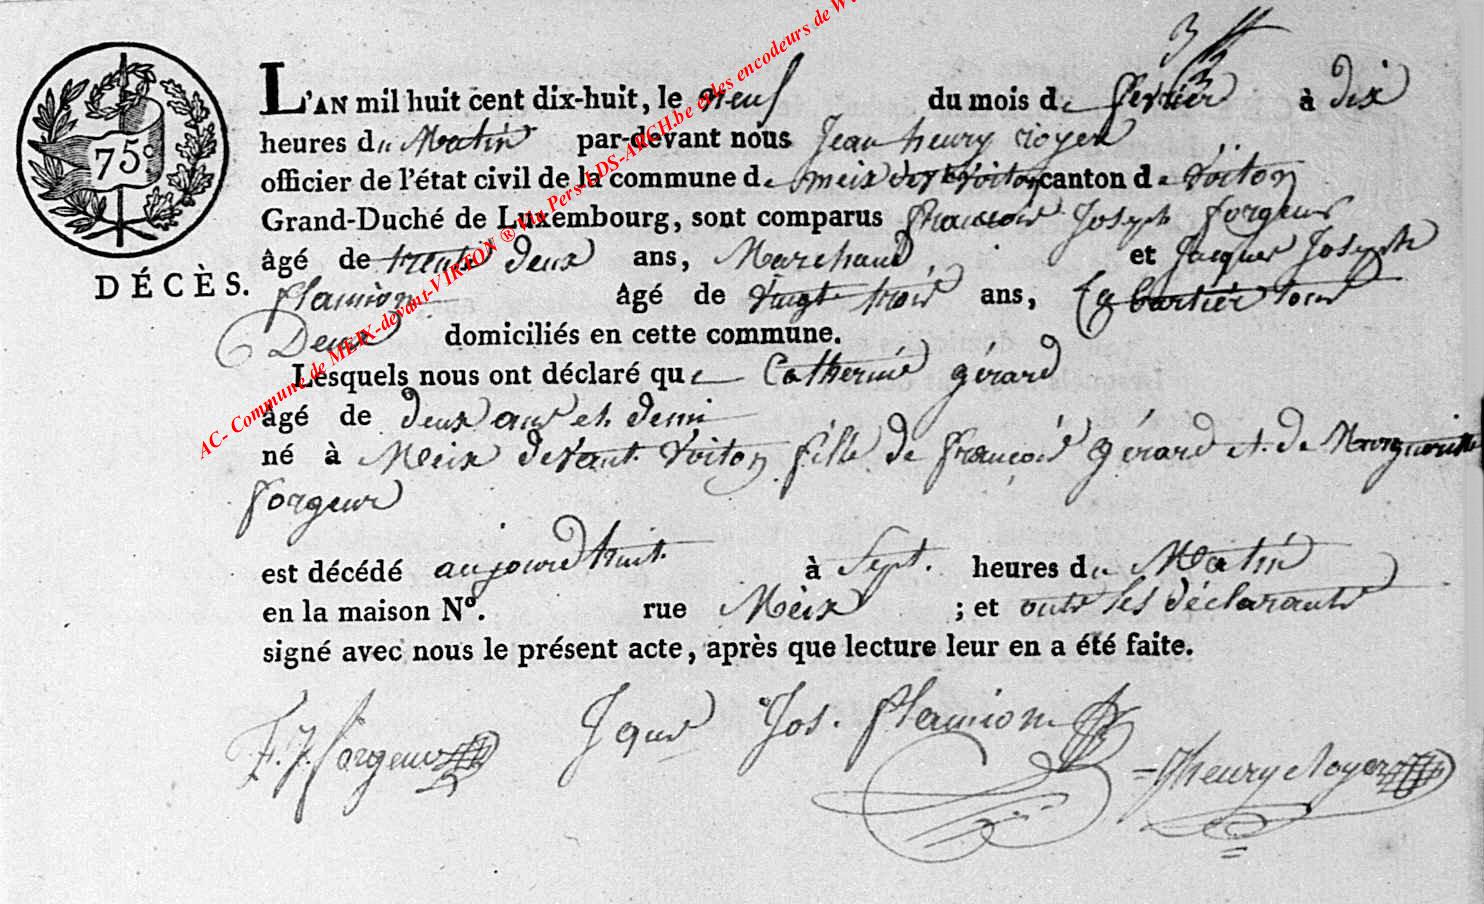 3
L'AN mil huit cent dix-huit, le neuf du mois de fevrier à dix
75c
heures du Matin par-devant nous Jean henry Royer
officier de l'état civil de la commune de meix devt virton canton de virton
Grand-Duché de Luxembourg, sont comparus francois Joseph forgeur
âgé de trente deux ans, Marchand, et Jacques Joseph
DÉCÈS.
flamion âgé de vingt trois ans, tous
Deux domiciliés en cette commune.
Lesquels nous ont déclaré que Catherine gérard
âgé de deux ans et demi
né à Meix devant virton fille de françois gérard et de Marguerite
forgeur
est décédé aujourdhuit à Sept heures du Matin
en la maison N°. rue Meix ; et onts les déclarants
signé avec nous le présent acte, après que lecture leur en a été faite.
F. J. forgeur Jques Jos. flamion
Jhenry Royer
AC- Commune de MEIX-devant-VIRTON ® Via Pers-LDS-ARCH.be et les encodeurs de